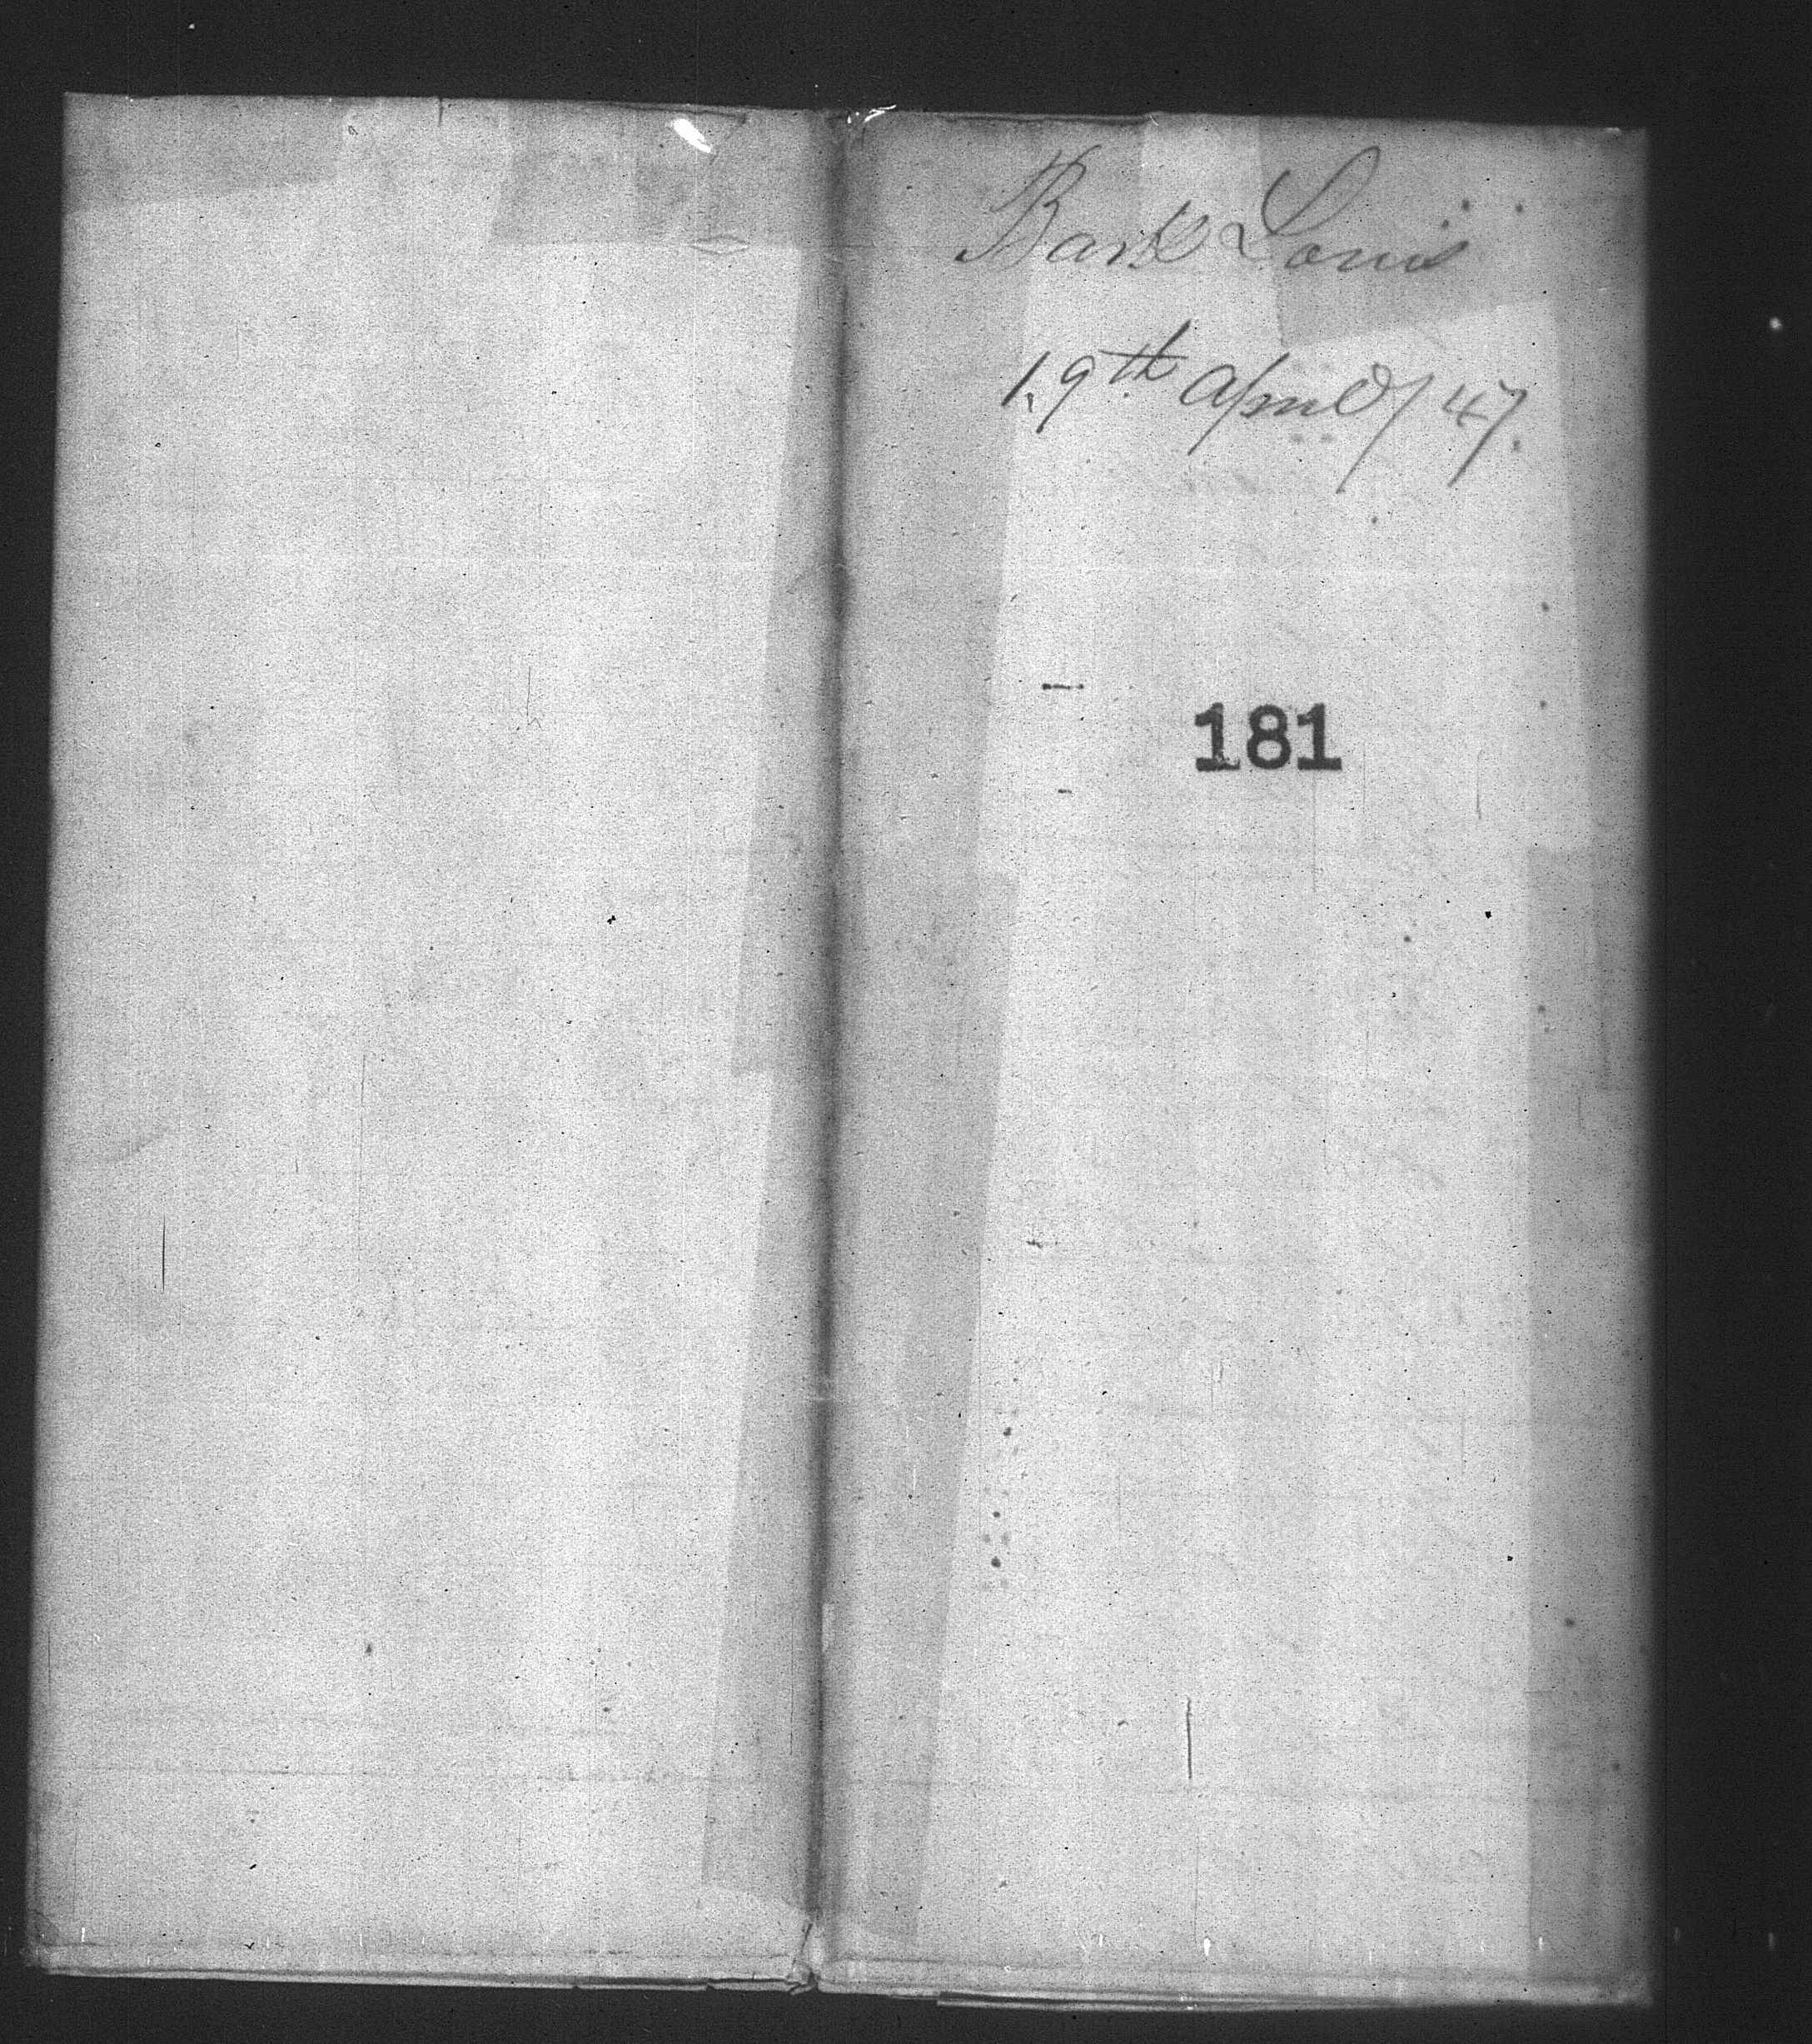 Bark Louis
19th April / 47.
181